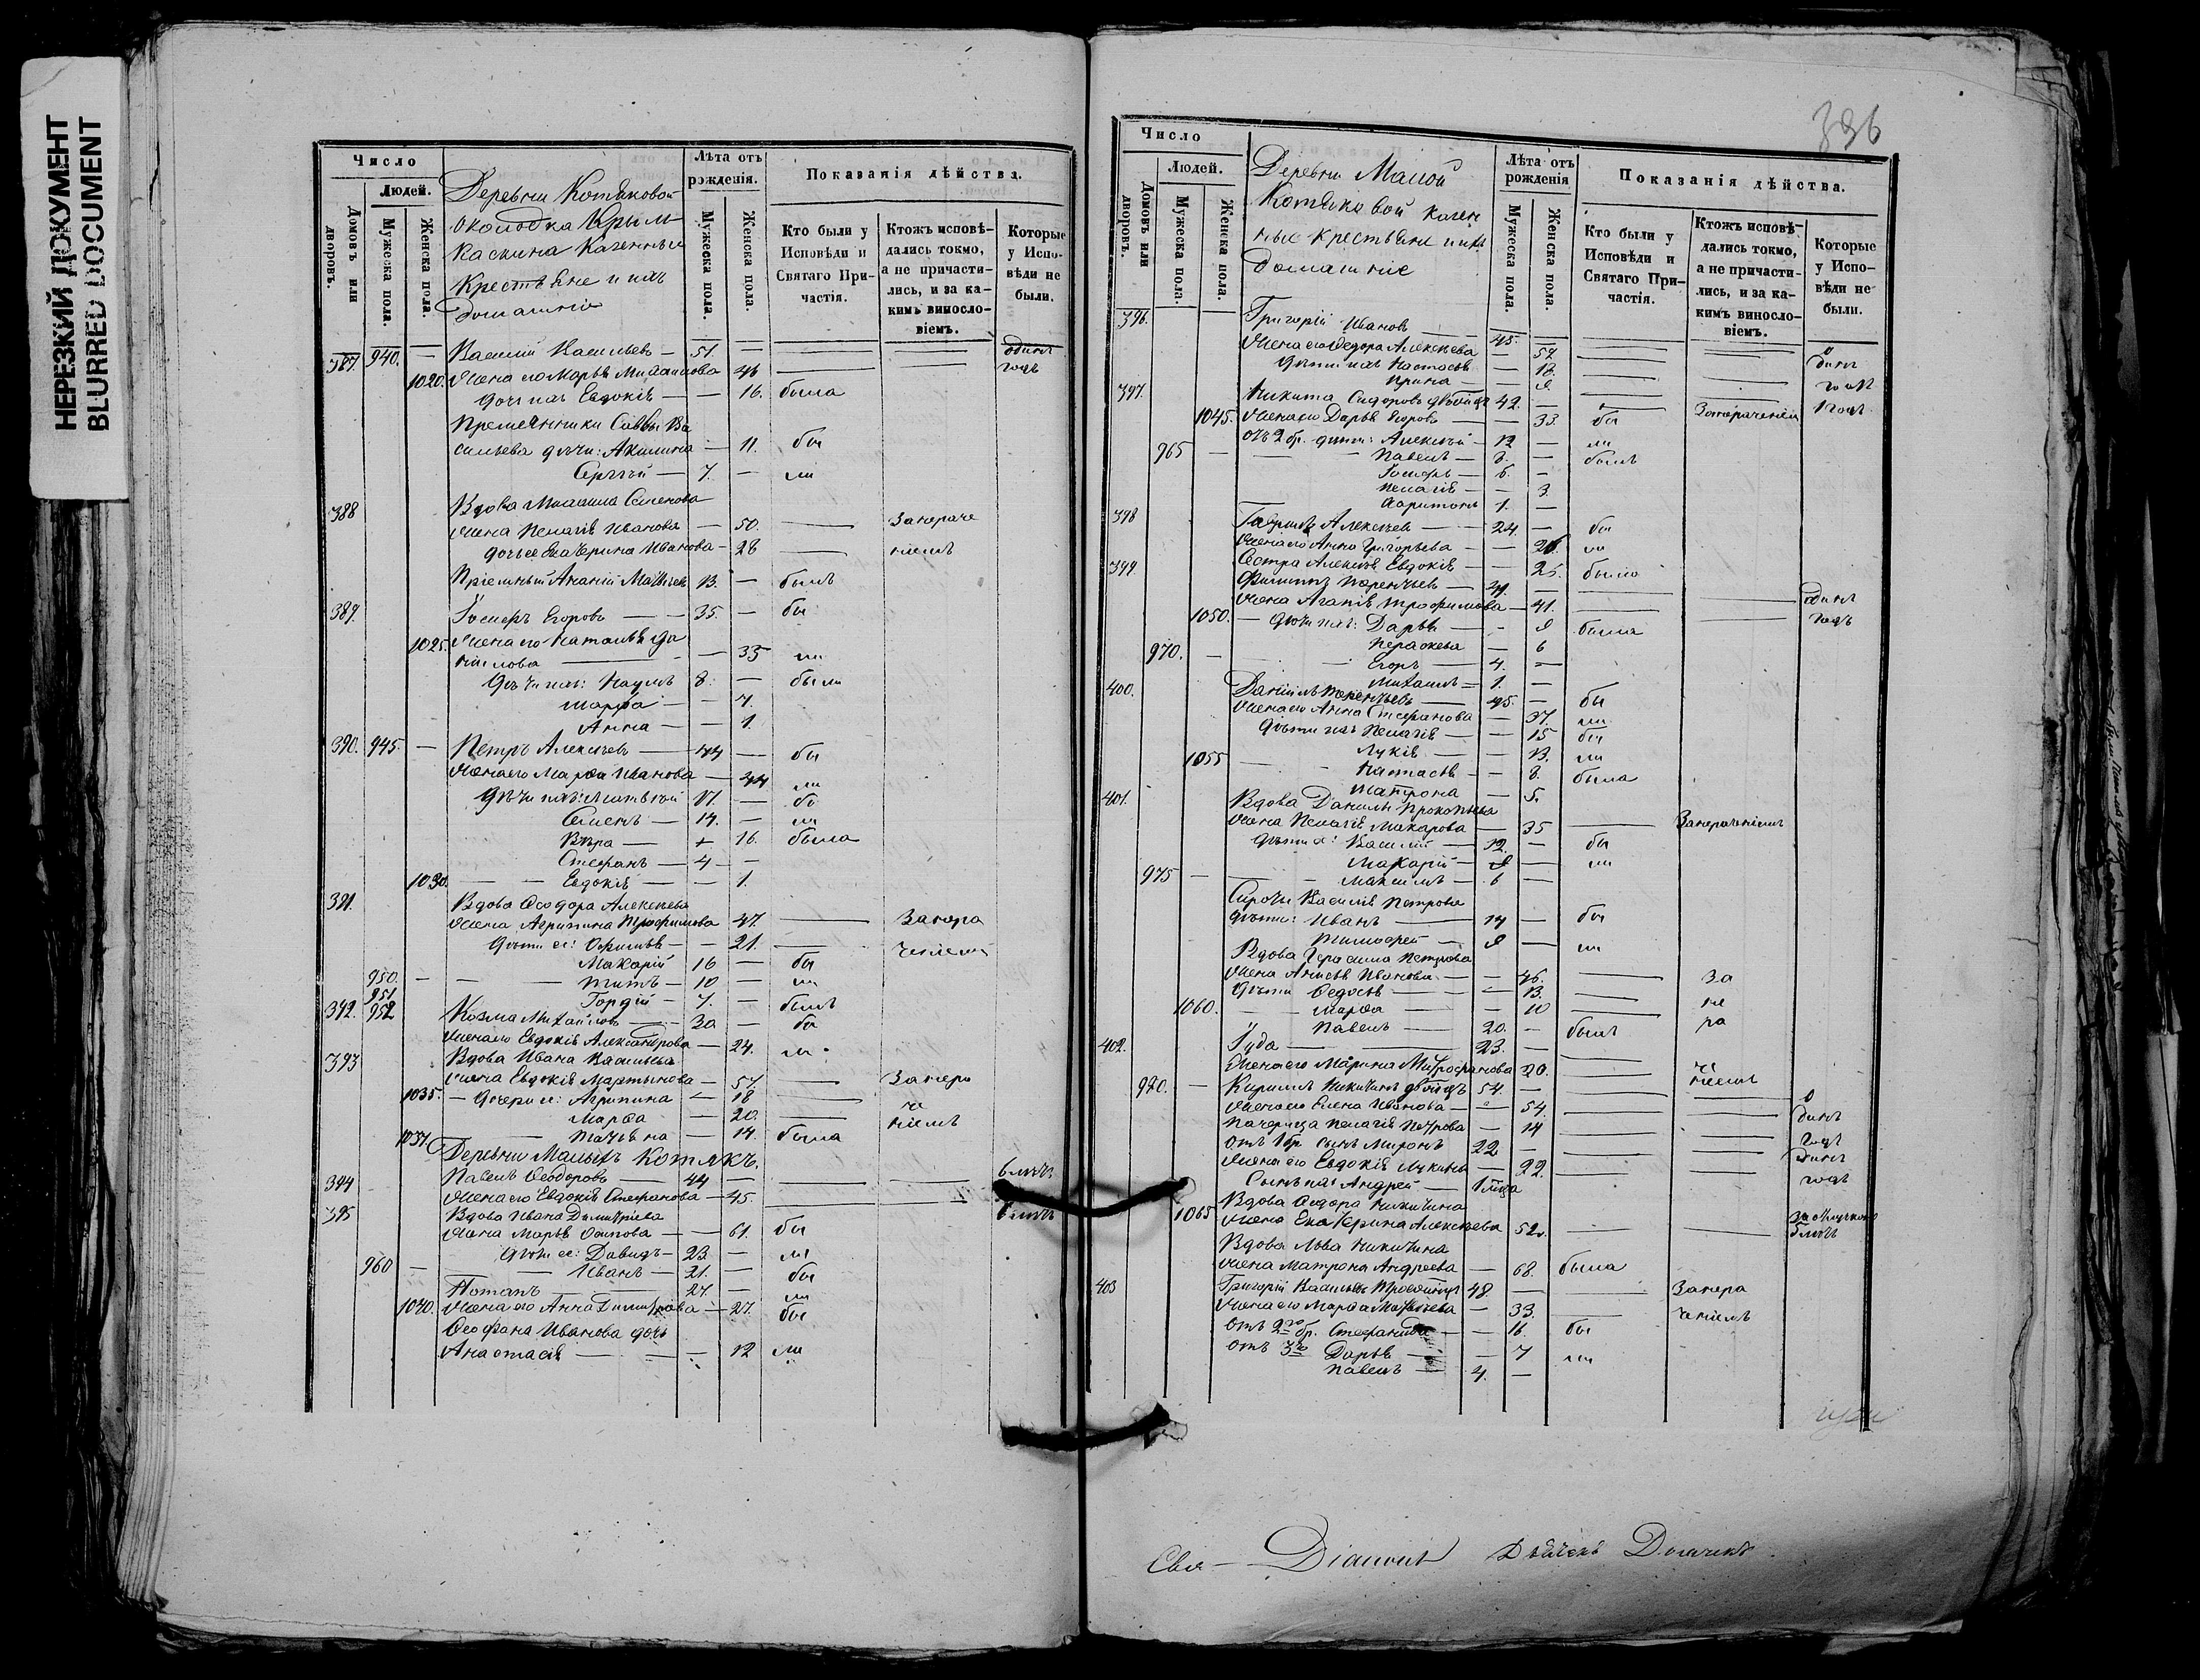 НЕРЕЗКИЙ ДОКУМЕНТ
BLURRED DOCUMENT
Число
Людей.
Домовъ или дворовъ.
Мужеска пола.
Женска пола.
Деревни Котяковой
околодка Крым-
каскина Казенныи
Крестьяне и ихъ
домашніе
Лѣта отъ рожденія.
Мужеска пола.
Женска пола.
Показанія дѣйства.
Кто были у Исповѣди и Святаго Причастія.
Ктожъ исповѣдались токмо, а не причастились, и за какимъ винословіемъ.
Которые у Исповѣди не были.
387. 940. — Василій Васильевъ — 51. — одинъ
1020. Жена его Марья Михаилова 46 годъ
дочь ихъ Евдокія — — 16. была
Племянники Саввы Ва
сильева дѣти: Акилина — 11. бы
Сергѣй — 7. — ли
388 Вдова Михаила Семенова
жена Пелагія Иванова — 50. Занераче
дочь ее Екатерина Иванова — 28 ніемъ
Пріемный Ананій 13. — былъ
389. Іосифъ Егоровъ — 35. — бы
1025. Жена его Наталья Да
ниилова — 35 ли
дѣти ихъ: Наумъ 8. — были
Марфа — — 4.
Анна — — 1.
390. 945. — Петръ Алексѣевъ — 44 — бы
Жена его Марфа Иванова — 44 ли
дѣти ихъ: Матвѣй 17. — бы
Семенъ — 14. — ли
Вѣра — 16. была
Стефанъ — 4 —
1030. — — Евдокія — — 1.
391. Вдова Ѳеодора Алексѣева
жена Агрипина Трофимова 47. Занера
дѣти ее: Офимья — — 21. ченіемъ
Макарій 16 — бы
950. — — Титъ — 10 — ли
951 Гордій — 7. — былъ
392. 952 Козма Михайловъ — 30 — бы
Жена его Евдокія Александрова — 24. ли
393 Вдова Ивана Васильева
жена Евдокія Мартынова — 57. Занера
1035. — дочери ее: Агрипина — 18 че
Марфа — 20. ніемъ
1037. Татьяна — 14. была
Деревни Малыхъ Котякъ.
394 Павелъ Ѳеодоровъ — 44 — 6 лѣтъ
Жена его Евдокія Стефанова — 45.
395 Вдова Ивана Димитріева 6 лѣтъ
жена Марья Осипова — — 61. бы
дѣти ее: Давидъ — 23. — ли
960 — — Иванъ — 21. — бы
Потапъ — 27. — ли
1040. Жена его Анна Димитріева — 27. бы
Ѳеофана Иванова дочь
Анастасія — — 12 ли
396
Число
Людей.
Домовъ или дворовъ.
Мужеска пола.
Женска пола.
Деревни Малой
Котяковой казен
ные крестьяне и ихъ
домашніе
Лѣта отъ рожденія
Мужеска пола.
Женска пола.
Показанія дѣйства.
Кто были у Исповѣди и Святаго Причастія.
Ктожъ исповѣдались токмо, а не причастились, и за какимъ винословіемъ.
Которые у Исповѣди не были.
396. — — Григорій Ивановъ — 45. —
Жена его Федора Алексѣева — 52. о
дѣти ихъ Настасья — 18. динъ
Ирина — — 9 годъ
397. Никита Сидоровъ 42. — 1 годъ
1045. Жена его Дарья Егорова — 33. бы Занераченіем
отъ 2 бр. дѣти: Алексѣй — 12 — ли
965 — — Павелъ — 8. — былъ
Іосифъ — 6. —
Пелагія — — 3.
Харитонъ 1. —
398 Гавріилъ Алексѣевъ — 24. — бы
Жена его Анна Григорьева — — 26. ли
Сестра Алексѣя Евдокія — — 25. была
399. Филиппъ Терентьевъ —
жена Агапія Трофимова — 41. одинъ
1050. — дѣти ихъ: Дарья — — 9 были годъ
Параскева — 6
970. — — Егоръ — 4. —
Михаилъ — 1. —
400. Даніилъ Терентьевъ — 45. — бы
Жена его Анна Стефанова — 37. ли
дѣти ихъ Пелагія — — 15 бы
Лукія — — 13. ли
1055 — — Настасья — — 8. была
Матрона — 5.
401. Вдова Данилы Прокопьева
жена Пелагія Макарова — 35 Занераченіемъ
дѣти ея: Василій — 12. — бы
Макарій — 9 — ли
975 — — Максимъ — 6 —
Сироты Василія Петрова
дѣти: Иванъ — 14 — бы
Тимофей — 9 — ли
Вдова Герасима Петрова
жена Анисья Иванова — — 46. за
дѣти Ѳедосья — — 13. не
1060. — — Марфа — — 10 ра
Павелъ — 20. — былъ
402. Іуда — 23. —
Жена его Марина Митрофанова 20. че
980. — Кириллъ Никитинъ 54. — ніемъ
Жена его Елена Иванова — — 54. о
Падчерица Пелагія Петрова — 14 динъ
отъ 1 бр. сынъ Миронъ 22 — годъ
Жена его Евдокія Лукина — 22. одинъ
Сынъ ихъ Андрей — 1 годъ
Вдова Ѳедора Никитина
1065 жена Екатерина Алексѣева 52. 5 лѣтъ
Вдова Льва Никитина
жена Матрона Андреева — 68. была
403 Григорій Васильевъ 48. — Занера
Жена его Марфа Матвѣева — 33. ченіемъ
отъ 2го бр. Стефанида — — 16. бы
отъ 3го Дарья — — 7 ли
Павелъ — 4. —
Свя —